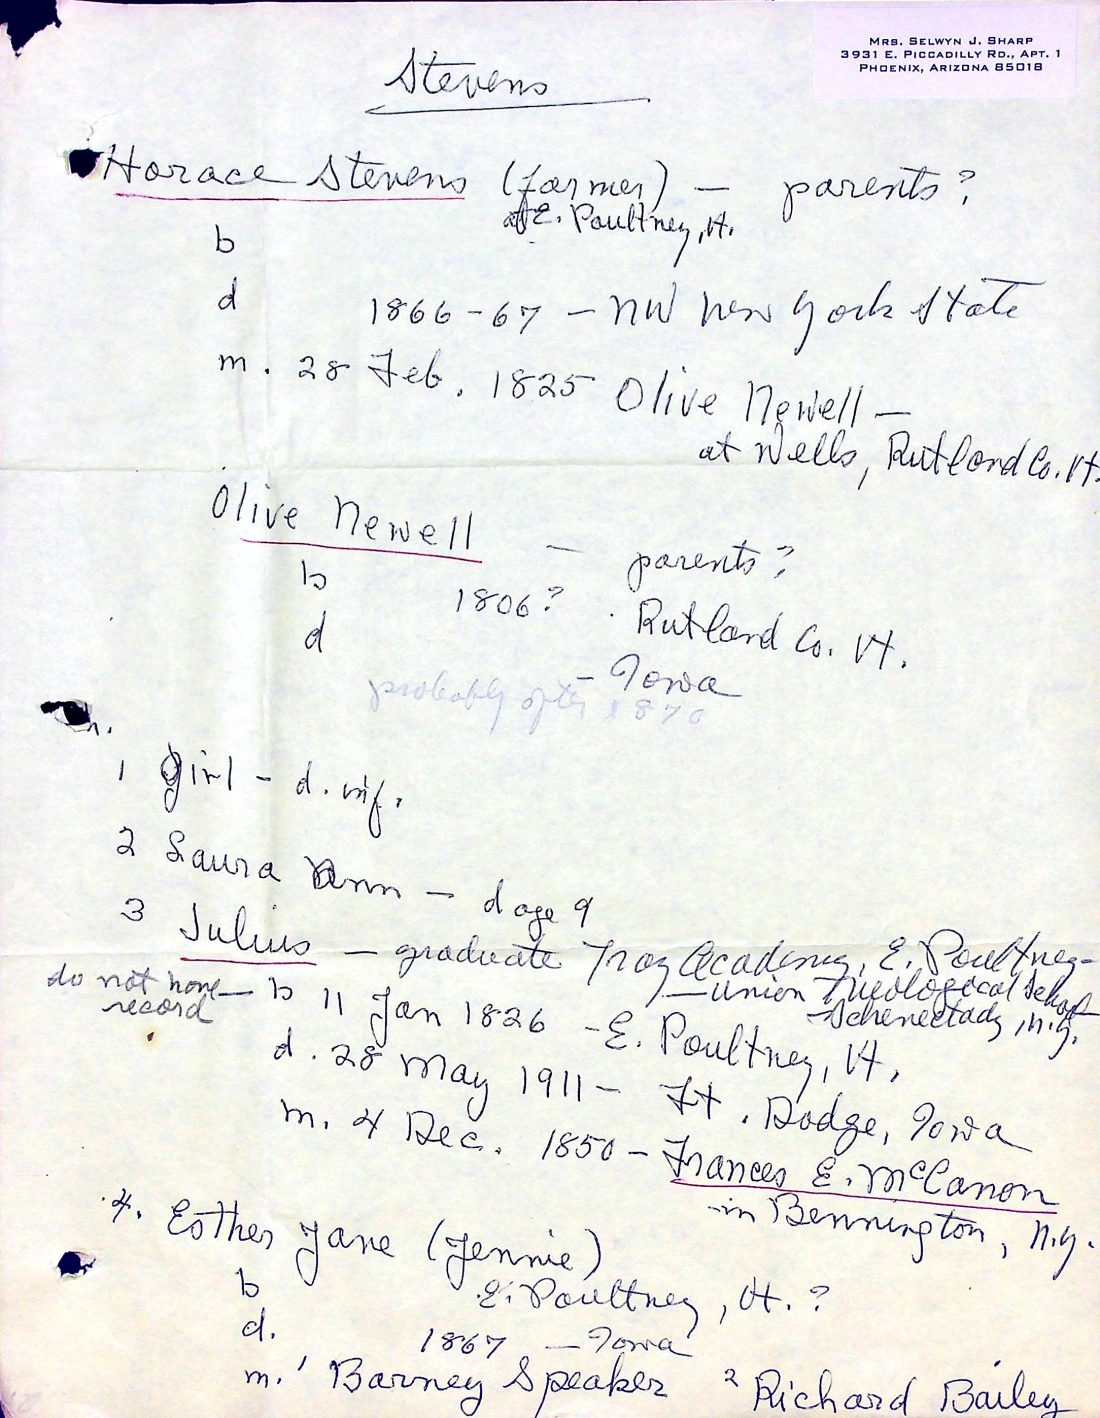 MRS. SELWYN J. SHARP
3931 E. PICCADILLY RD., APT. 1
PHOENIX, ARIZONA 85018
Stevens
Horace Stevens (farmer) — parents?
at E. Poultney, Vt.
b
d 1866-67 — NW New York State
m. 28 Feb. 1825 Olive Newell —
at Wells, Rutland Co. Vt.
Olive Newell — parents?
b 1806? Rutland Co. Vt.
d — Iowa
probably after 1870
ch.
1 Girl - d. inf.
2 Laura Ann — d age 9
3 Julius — graduate Troy Academy, E. Poultney-
— Union Theological School
Schenectady, N.Y.
do not have record — b 11 Jan 1826 - E. Poultney, Vt.
d. 28 May 1911 — Ft. Dodge, Iowa
m. 4 Dec. 1850 — Frances E. McCanon
in Bennington, N.Y.
4. Esther Jane (Jennie)
b E. Poultney, Vt.?
d. 1867 — Iowa
m. 1 Barney Speaker 2 Richard Bailey